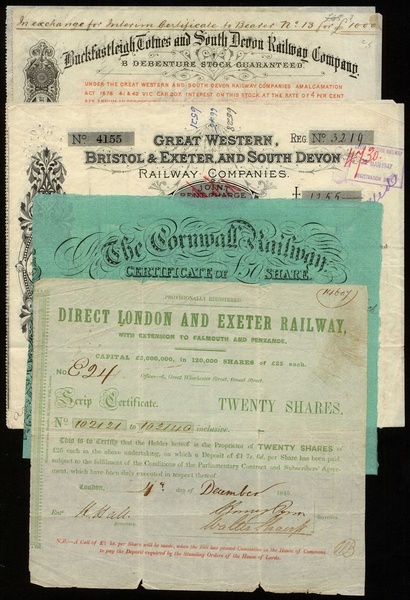 In exchange for Interim Certificate to Bearer No 13 for £1000
Buckfastleigh, Totnes and South Devon Railway Company.
B DEBENTURE STOCK GUARANTEED.
UNDER THE GREAT WESTERN AND SOUTH DEVON RAILWAY COMPANIES AMALGAMATION
ACT 1878 41 & 42 VIC CAP INTEREST ON THIS STOCK AT THE RATE OF 4 PER CENT
No 4155
REG. No 3219
GREAT WESTERN,
BRISTOL & EXETER, AND SOUTH DEVON
RAILWAY COMPANIES.
JOINT
RENT-CHARGE
£ 1255
The Cornwall Railway
CERTIFICATE OF £50 SHARE.
PROVISIONALLY REGISTERED
DIRECT LONDON AND EXETER RAILWAY,
WITH EXTENSION TO FALMOUTH AND PENZANCE.
CAPITAL £3,000,000, IN 120,000 SHARES OF £25 EACH.
No. E24
Offices—6, Great Winchester Street, Broad Street.
Scrip Certificate.
TWENTY SHARES,
No 102121 to 102140 inclusive.
This is to Certify that the Holder hereof is the Proprietor of TWENTY SHARES of
£25 each in the above undertaking, on which a Deposit of £1 7s. 6d. per Share has been paid,
subject to the fulfilment of the Conditions of the Parliamentary Contract and Subscribers' Agreement,
which have been duly executed in respect thereof.
London, 4th day of December 1845.
N.B.—A Call of £1 5s. per Share will be made, when the Bill has passed Committee in the House of Commons,
to pay the Deposit required by the Standing Orders of the House of Lords.